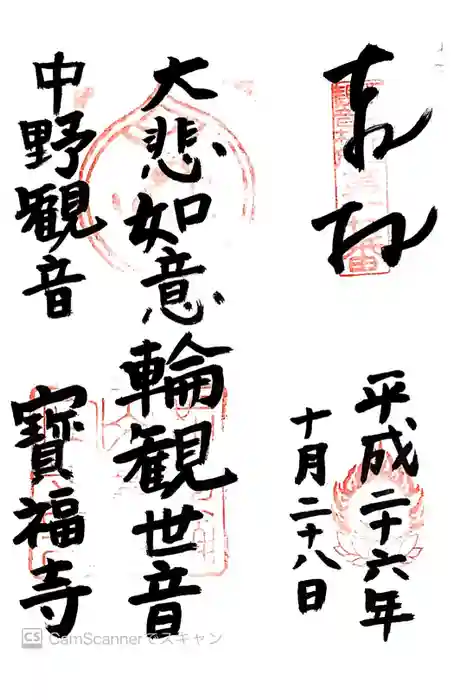 奉拝
平成二十六年
十月二十八日
大悲如意輪観世音
中野観音
寶福寺
CS CamScannerでスキャン